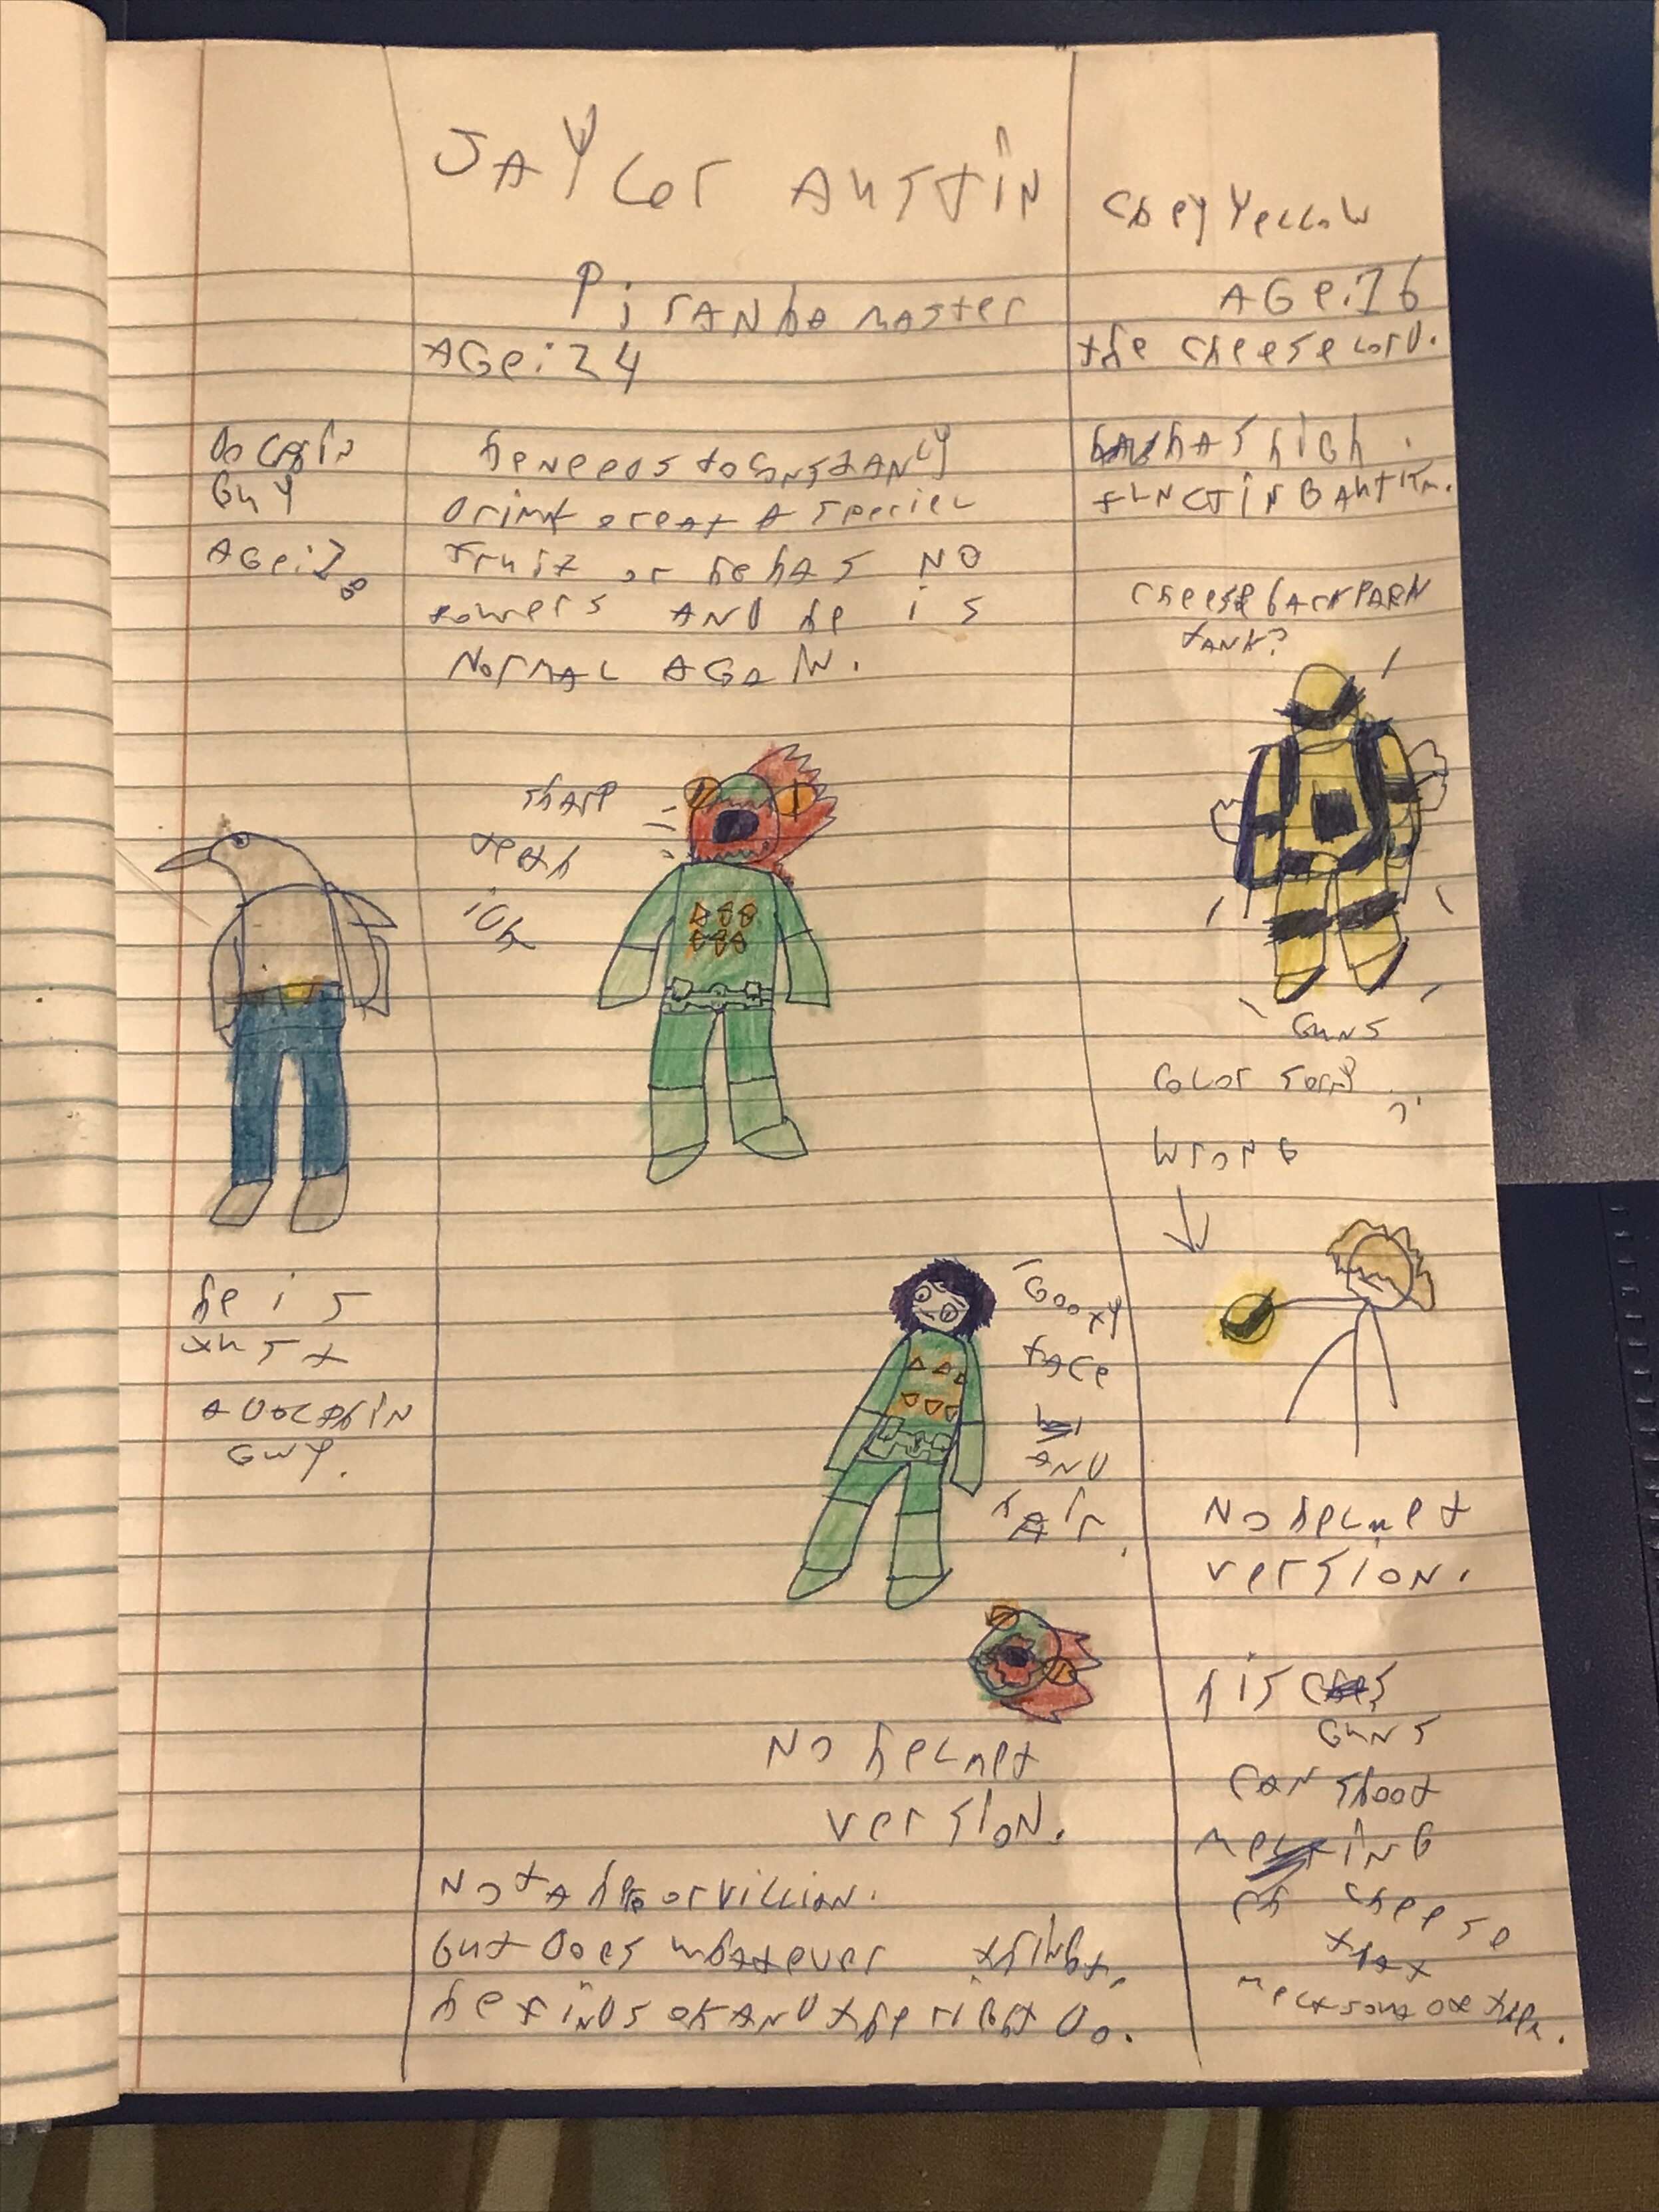 Guy
AGe:28
he is
Just
A Dolphin
Guy.
JAYLer AustiN
PirANha master
AGe:24
he NeeDs to constANLY
Drink or eat A speciel
fruit or he hAs NO
powers AND he is
NormAL AGAIN.
sharp
teeth
ich
Goozy
face
AND
hAir.
No heLmet
version.
Not A hero or viLLiAN.
but Does whatever thiNGs
he fiNDs ok AND the right Do.
CoeyYeLLoW
AGe:16
the cheese LorD.
hAs hiGh
fuNctiNG AutisM.
cheese bAckPAck
tANK?
GuNs
CoLor sorry
WroNG
No heLmet
version.
his
GuNs
cAN shoot
meLtiNG
cheese
that